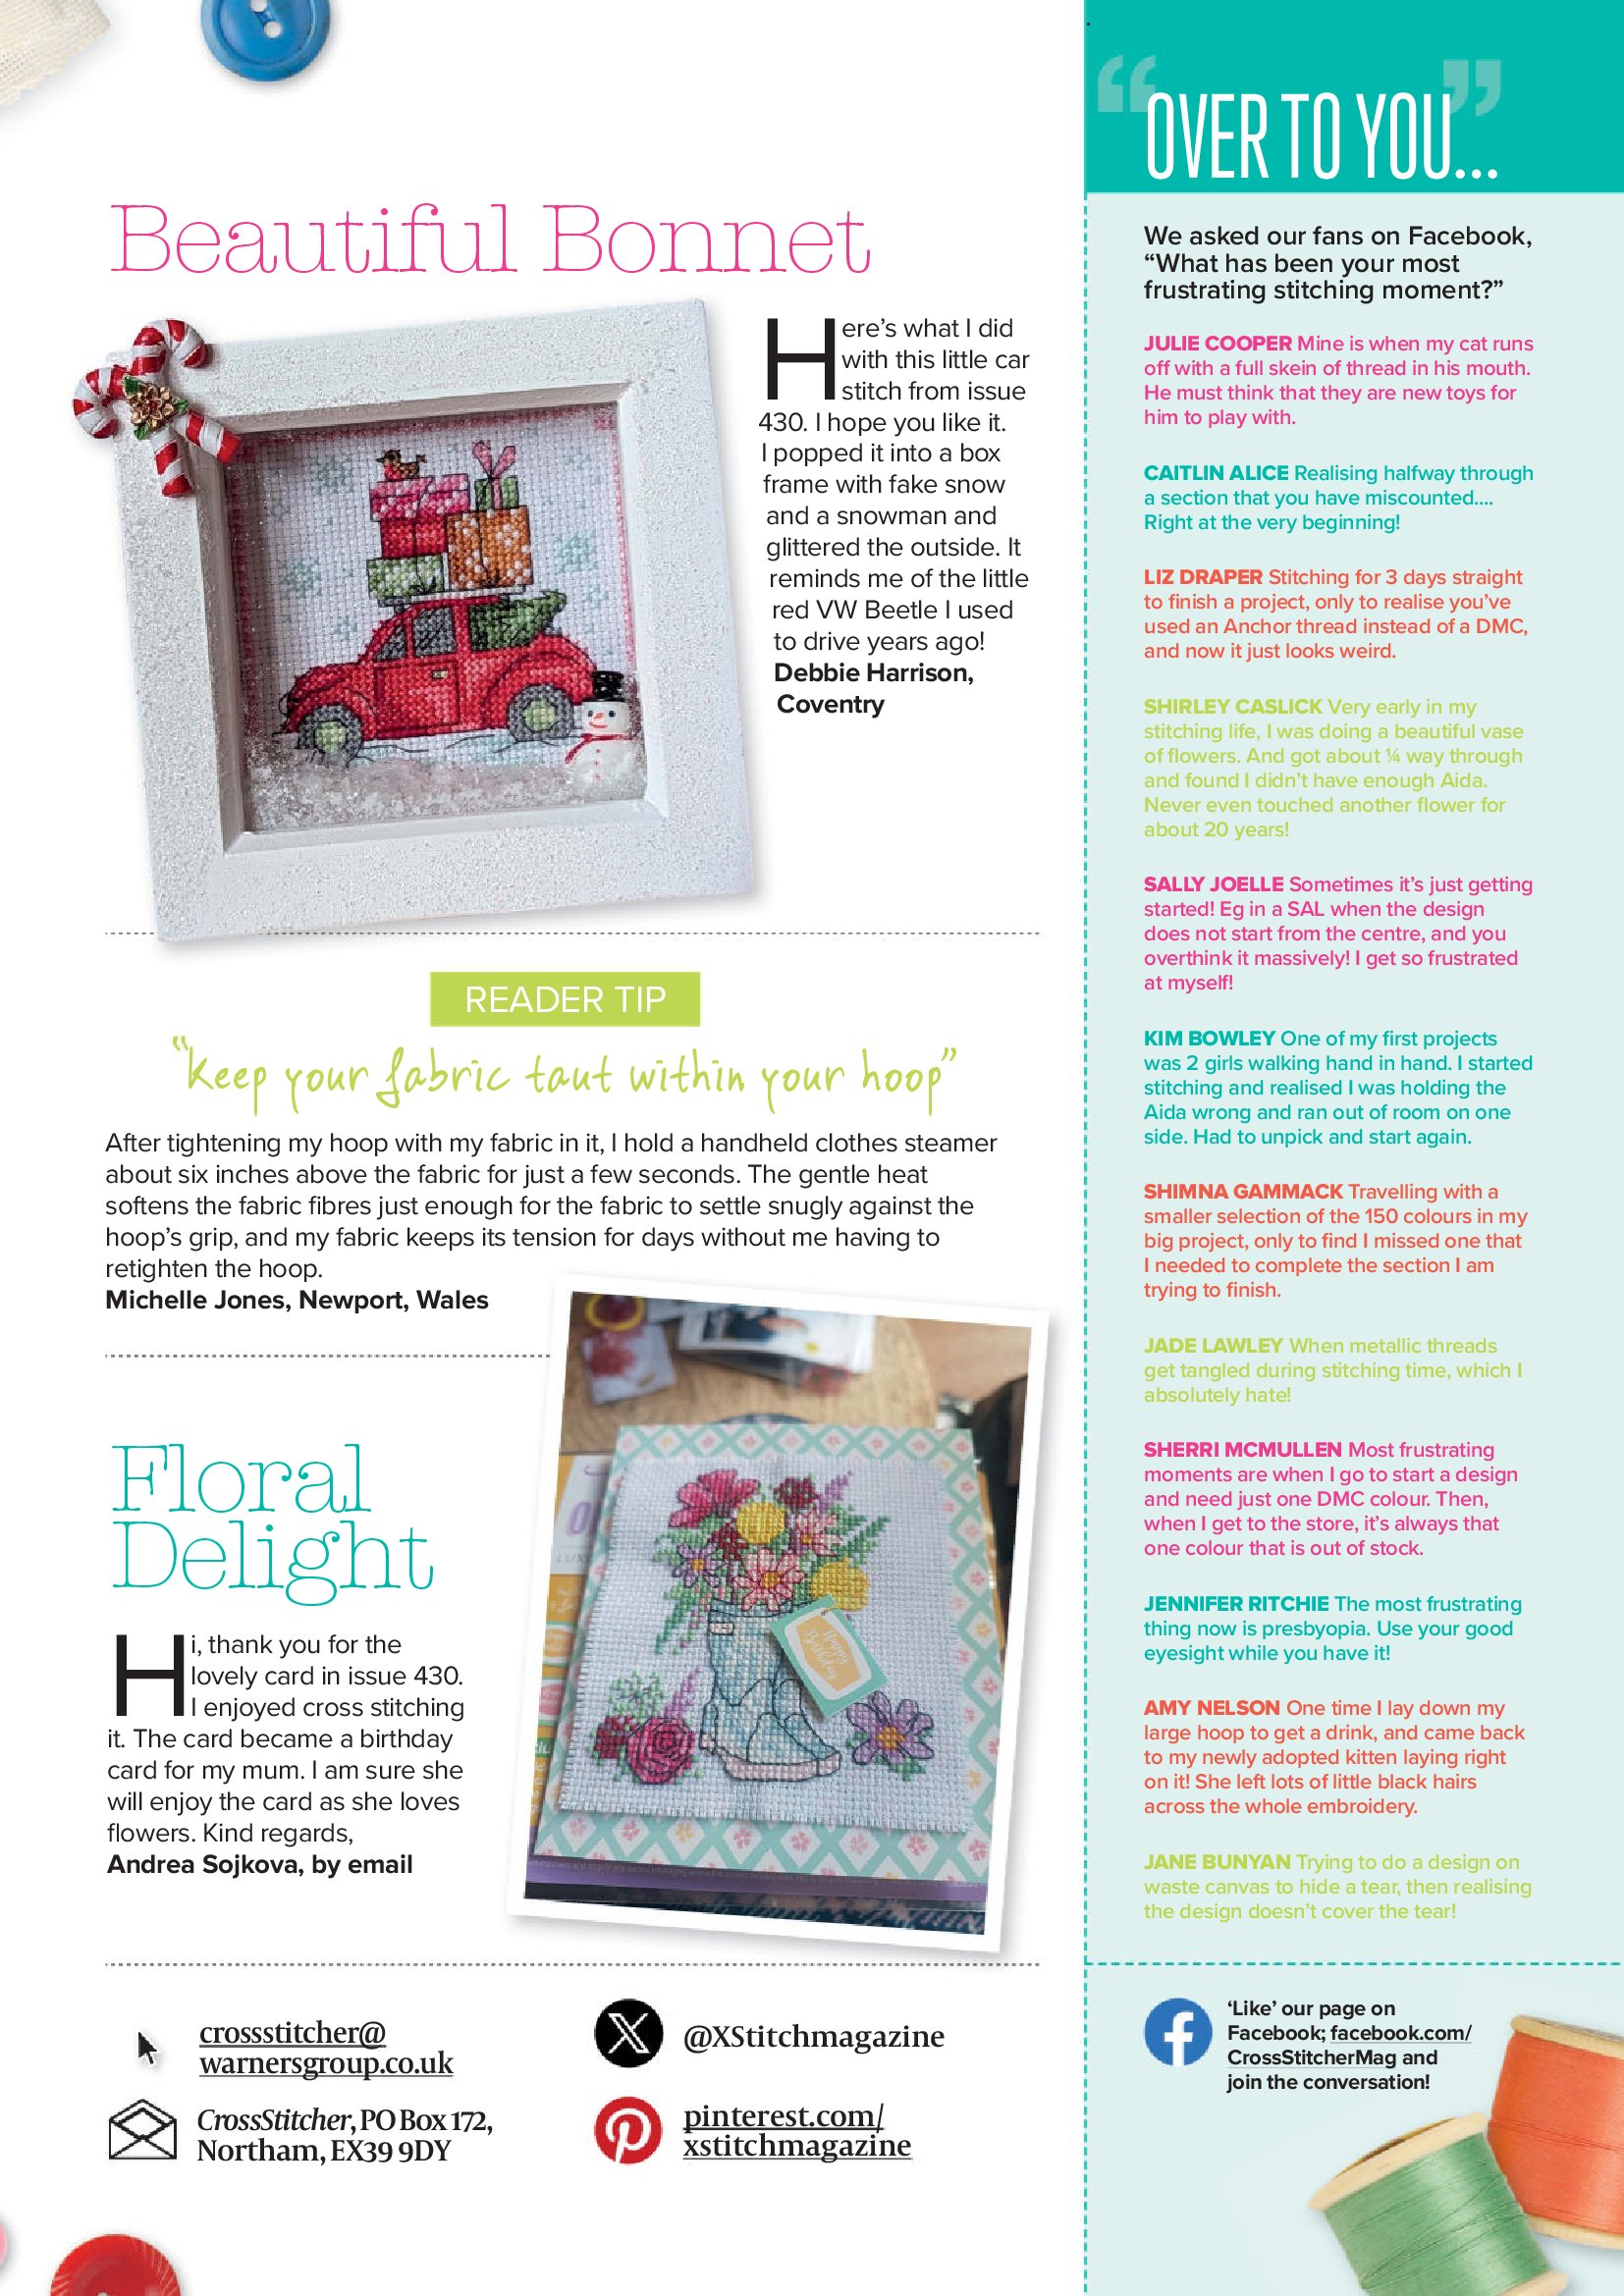 Beautiful Bonnet
Here’s what I did
with this little car
stitch from issue
430. I hope you like it.
I popped it into a box
frame with fake snow
and a snowman and
glittered the outside. It
reminds me of the little
red VW Beetle I used
to drive years ago!
Debbie Harrison,
Coventry
READER TIP
“keep your fabric taut within your hoop”
After tightening my hoop with my fabric in it, I hold a handheld clothes steamer
about six inches above the fabric for just a few seconds. The gentle heat
softens the fabric fibres just enough for the fabric to settle snugly against the
hoop’s grip, and my fabric keeps its tension for days without me having to
retighten the hoop.
Michelle Jones, Newport, Wales
Floral
Delight
Hi, thank you for the
lovely card in issue 430.
I enjoyed cross stitching
it. The card became a birthday
card for my mum. I am sure she
will enjoy the card as she loves
flowers. Kind regards,
Andrea Sojkova, by email
Happy
Birthday
crossstitcher@
warnersgroup.co.uk
CrossStitcher, PO Box 172,
Northam, EX39 9DY
@XStitchmagazine
pinterest.com/
xstitchmagazine
“OVER TO YOU...”
We asked our fans on Facebook,
“What has been your most
frustrating stitching moment?”
JULIE COOPER Mine is when my cat runs
off with a full skein of thread in his mouth.
He must think that they are new toys for
him to play with.
CAITLIN ALICE Realising halfway through
a section that you have miscounted....
Right at the very beginning!
LIZ DRAPER Stitching for 3 days straight
to finish a project, only to realise you’ve
used an Anchor thread instead of a DMC,
and now it just looks weird.
SHIRLEY CASLICK Very early in my
stitching life, I was doing a beautiful vase
of flowers. And got about ¼ way through
and found I didn’t have enough Aida.
Never even touched another flower for
about 20 years!
SALLY JOELLE Sometimes it’s just getting
started! Eg in a SAL when the design
does not start from the centre, and you
overthink it massively! I get so frustrated
at myself!
KIM BOWLEY One of my first projects
was 2 girls walking hand in hand. I started
stitching and realised I was holding the
Aida wrong and ran out of room on one
side. Had to unpick and start again.
SHIMNA GAMMACK Travelling with a
smaller selection of the 150 colours in my
big project, only to find I missed one that
I needed to complete the section I am
trying to finish.
JADE LAWLEY When metallic threads
get tangled during stitching time, which I
absolutely hate!
SHERRI MCMULLEN Most frustrating
moments are when I go to start a design
and need just one DMC colour. Then,
when I get to the store, it’s always that
one colour that is out of stock.
JENNIFER RITCHIE The most frustrating
thing now is presbyopia. Use your good
eyesight while you have it!
AMY NELSON One time I lay down my
large hoop to get a drink, and came back
to my newly adopted kitten laying right
on it! She left lots of little black hairs
across the whole embroidery.
JANE BUNYAN Trying to do a design on
waste canvas to hide a tear, then realising
the design doesn’t cover the tear!
‘Like’ our page on
Facebook; facebook.com/
CrossStitcherMag and
join the conversation!